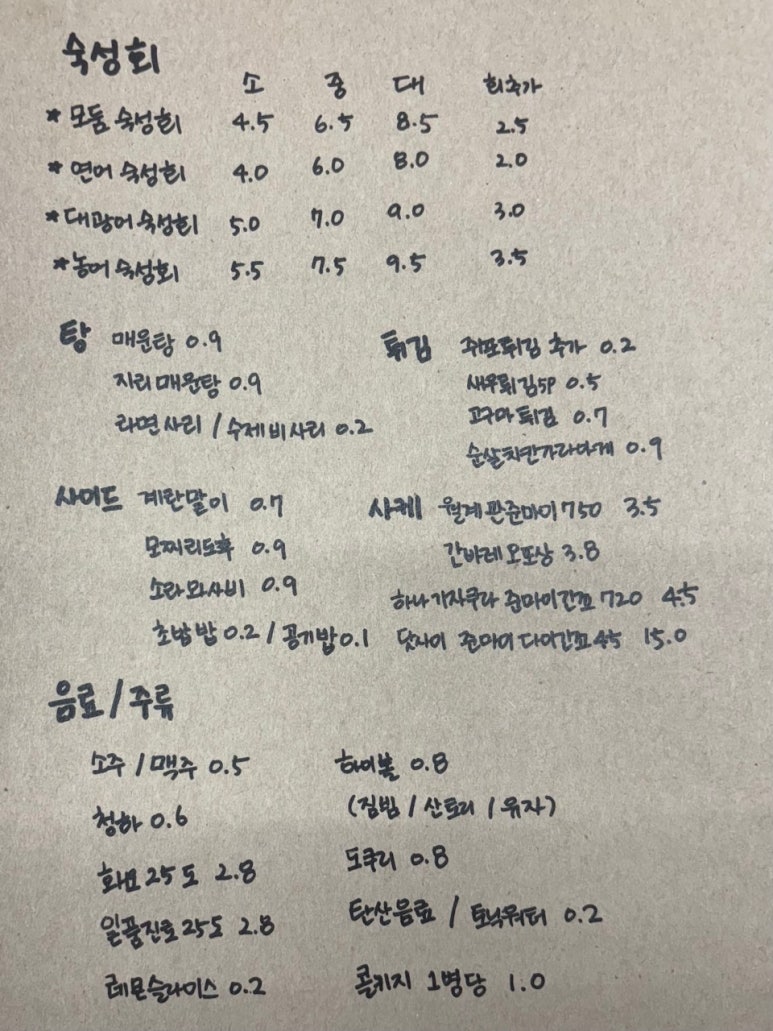 숙성회
소 중 대 회추가
* 모둠 숙성회 4.5 6.5 8.5 2.5
* 연어 숙성회 4.0 6.0 8.0 2.0
* 대광어 숙성회 5.0 7.0 9.0 3.0
* 농어 숙성회 5.5 7.5 9.5 3.5
탕 매운탕 0.9
지리매운탕 0.9
라면사리 / 수제비사리 0.2
튀김 쥐포튀김 추가 0.2
새우튀김5P 0.5
고구마튀김 0.7
순살치킨가라아게 0.9
사이드 계란말이 0.7
모찌리도후 0.9
소라와사비 0.9
초밥밥 0.2 / 공기밥 0.1
사케 월계관준마이750 3.5
간바레오또상 3.8
하나키자쿠라 준마이긴죠 720 4.5
닷사이 준마이 다이긴죠 45 15.0
음료 / 주류
소주 / 맥주 0.5
청하 0.6
화요 25도 2.8
일품진로25도 2.8
레몬슬라이스 0.2
하이볼 0.8
(짐빔 / 산토리 / 유자)
도쿠리 0.8
탄산음료 / 토닉워터 0.2
콜키지 1병당 1.0